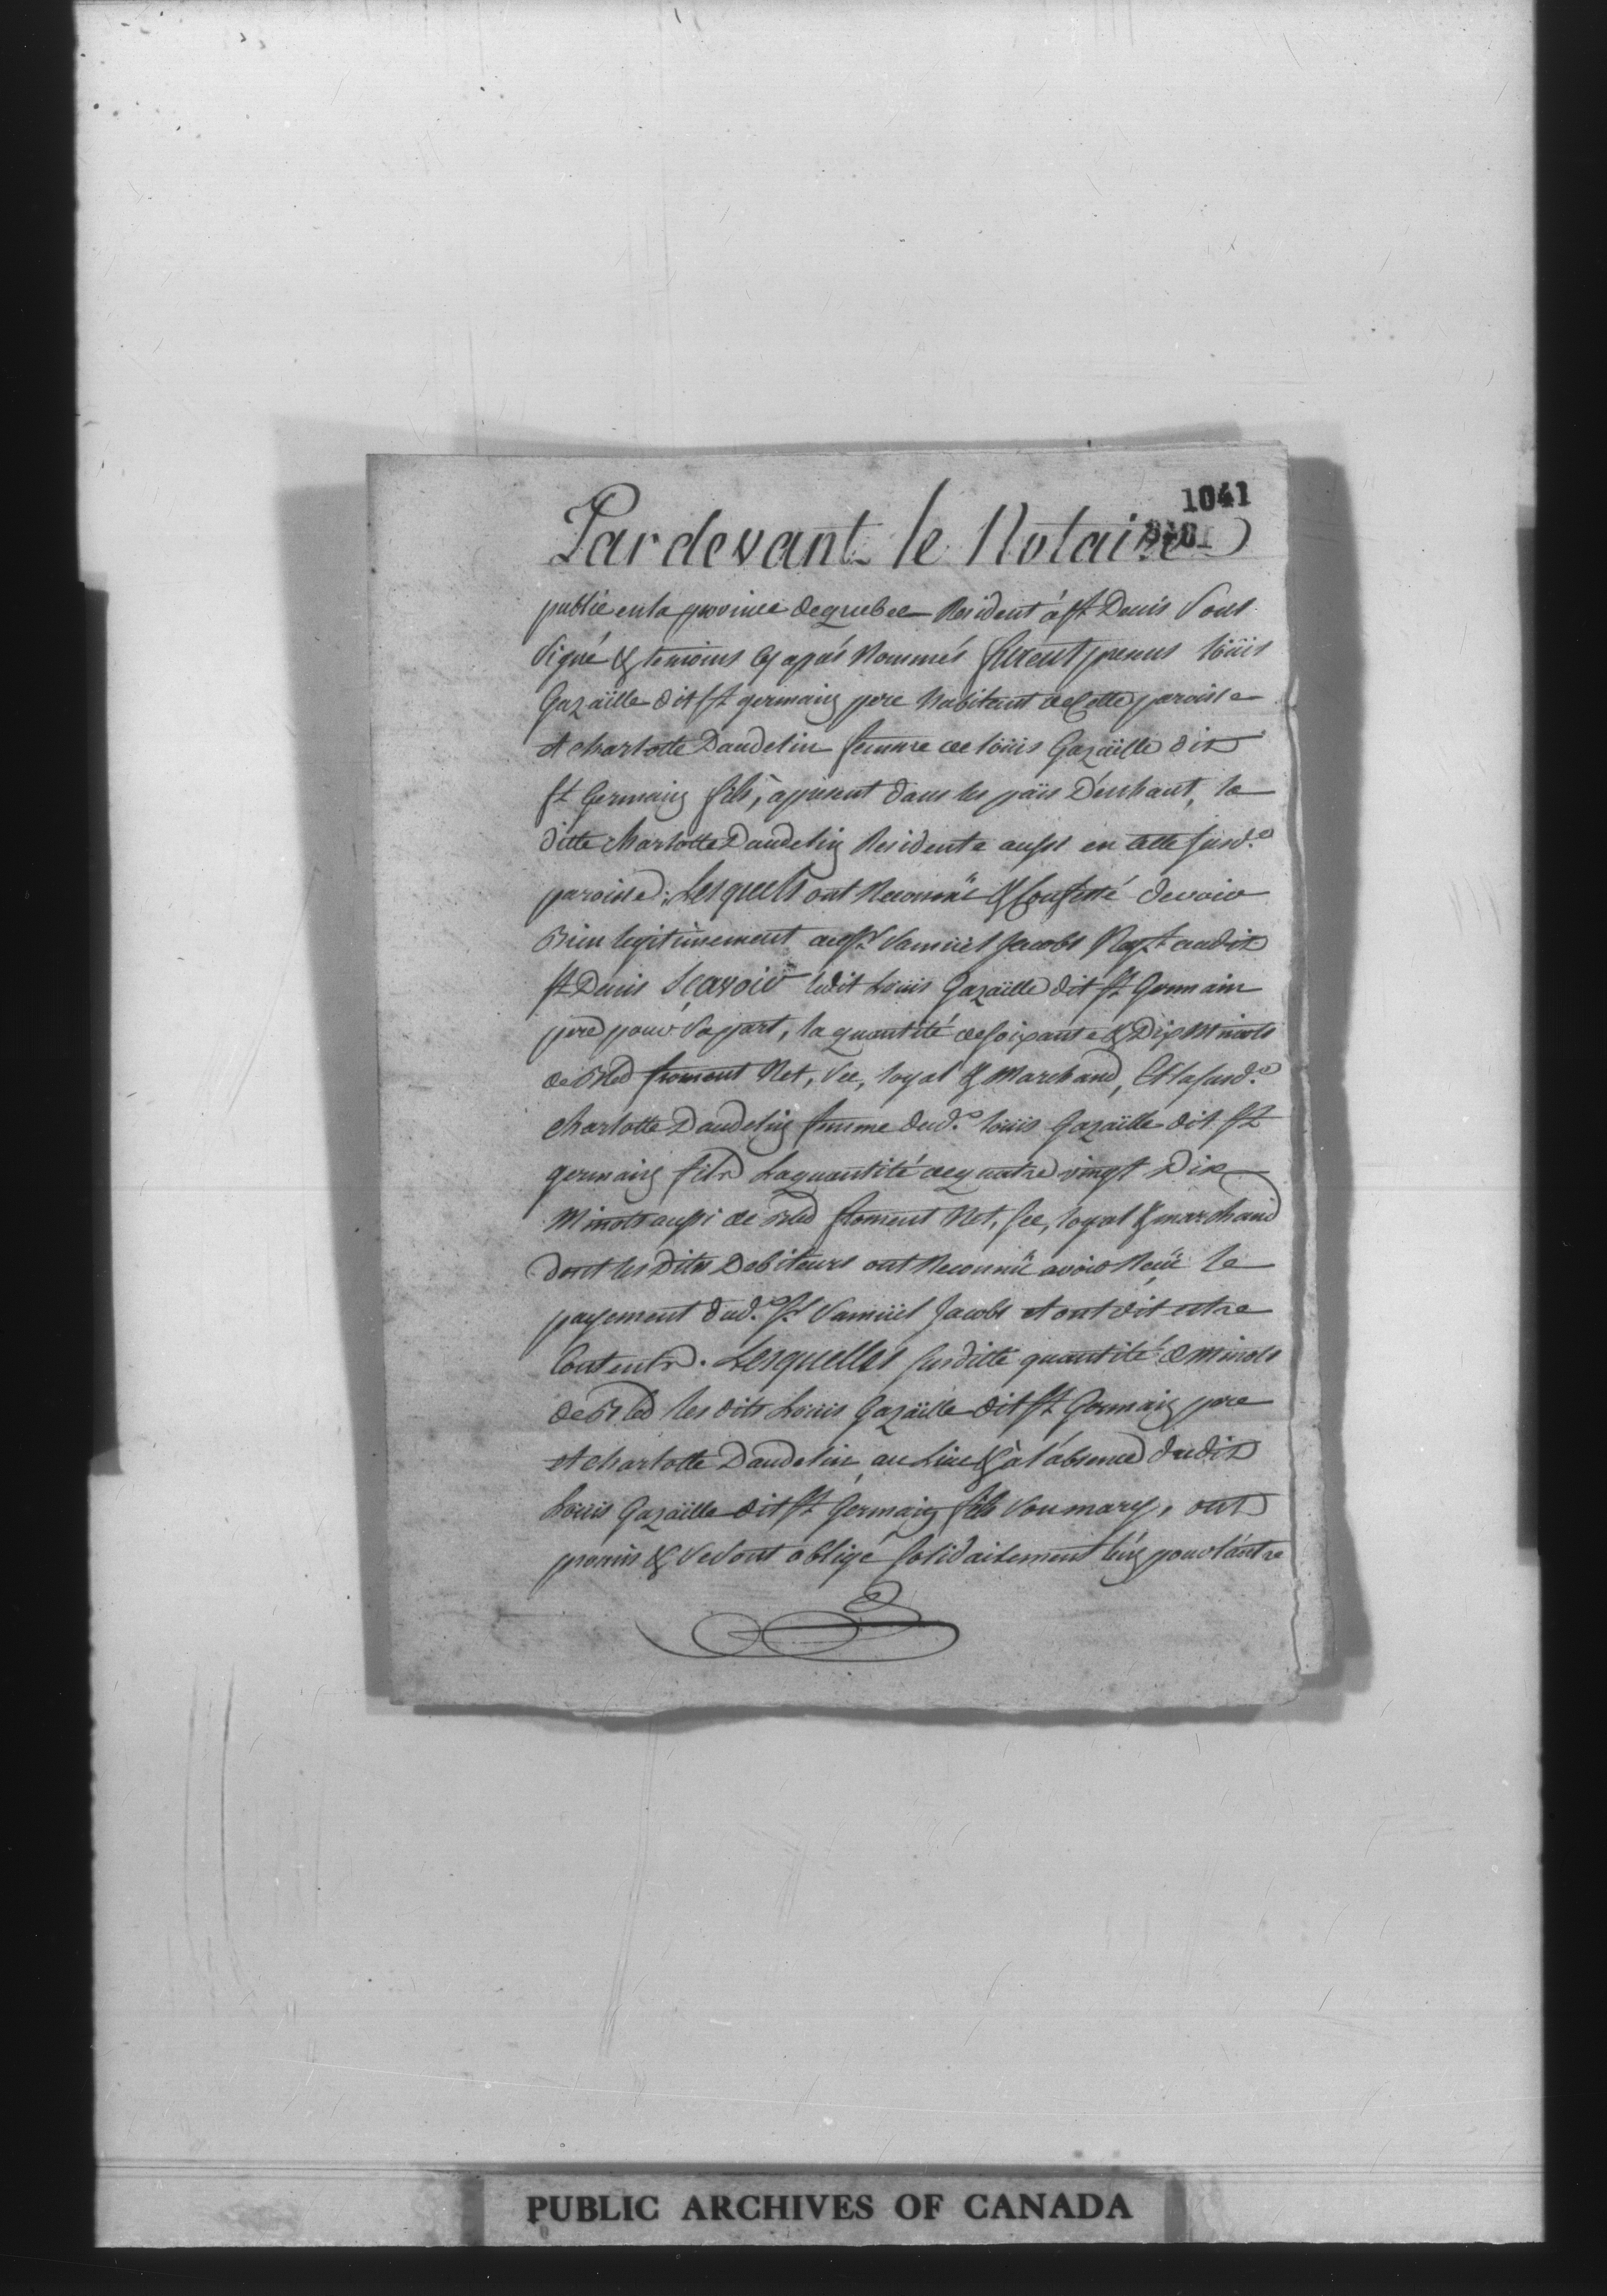 1041
Pardevant le Notaire
public en la province de quebec Resident à St Denis Sous
Signé & temoins cy après Nommés furent presens loüis
Gazaïlle dit St germain pere habitant de Cette paroisse
et charlotte Daudelin femme de loüis Gazaïlle dit
St Germain fils, apresent dans les païs D'enhaut, la
ditte charlotte Daudelin Residente aussi en cette susd.e
paroisse; Lesquels ont Reconnüe & Confessé devoir
Bien legitimement au Sr. Samüel Jacobs Negt audit
St Denis Sçavoir ledit Loüis Gazaïlle dit St Germain
pere pour Sa part, la quantité de soixante & Dix Minots
de Bled froment Net, Sec, loyal & Marchand, Et la susd.e
charlotte Daudelin femme dud.t loüis Gazaïlle dit St
germain fils La quantité de quatre vingt Dix
Minots aussi de bled froment Net, sec, loyal & marchand
Dont les Dits Debiteurs ont Reconnüe avoir Reçüe le
payement dud. Sr. Samüel Jacobs et ont dit estre
Contents. Lesquelles susditte quantité de minots
de Bled les dits Loüis Gazaïlle dit St Germain pere
et charlotte Daudelin, au Lieu & à l'absence dudit
Loüis Gazaïlle dit St Germain fils Son mary, ont
promis & Se sont obligé solidairement l'un pour l'autre
PUBLIC ARCHIVES OF CANADA